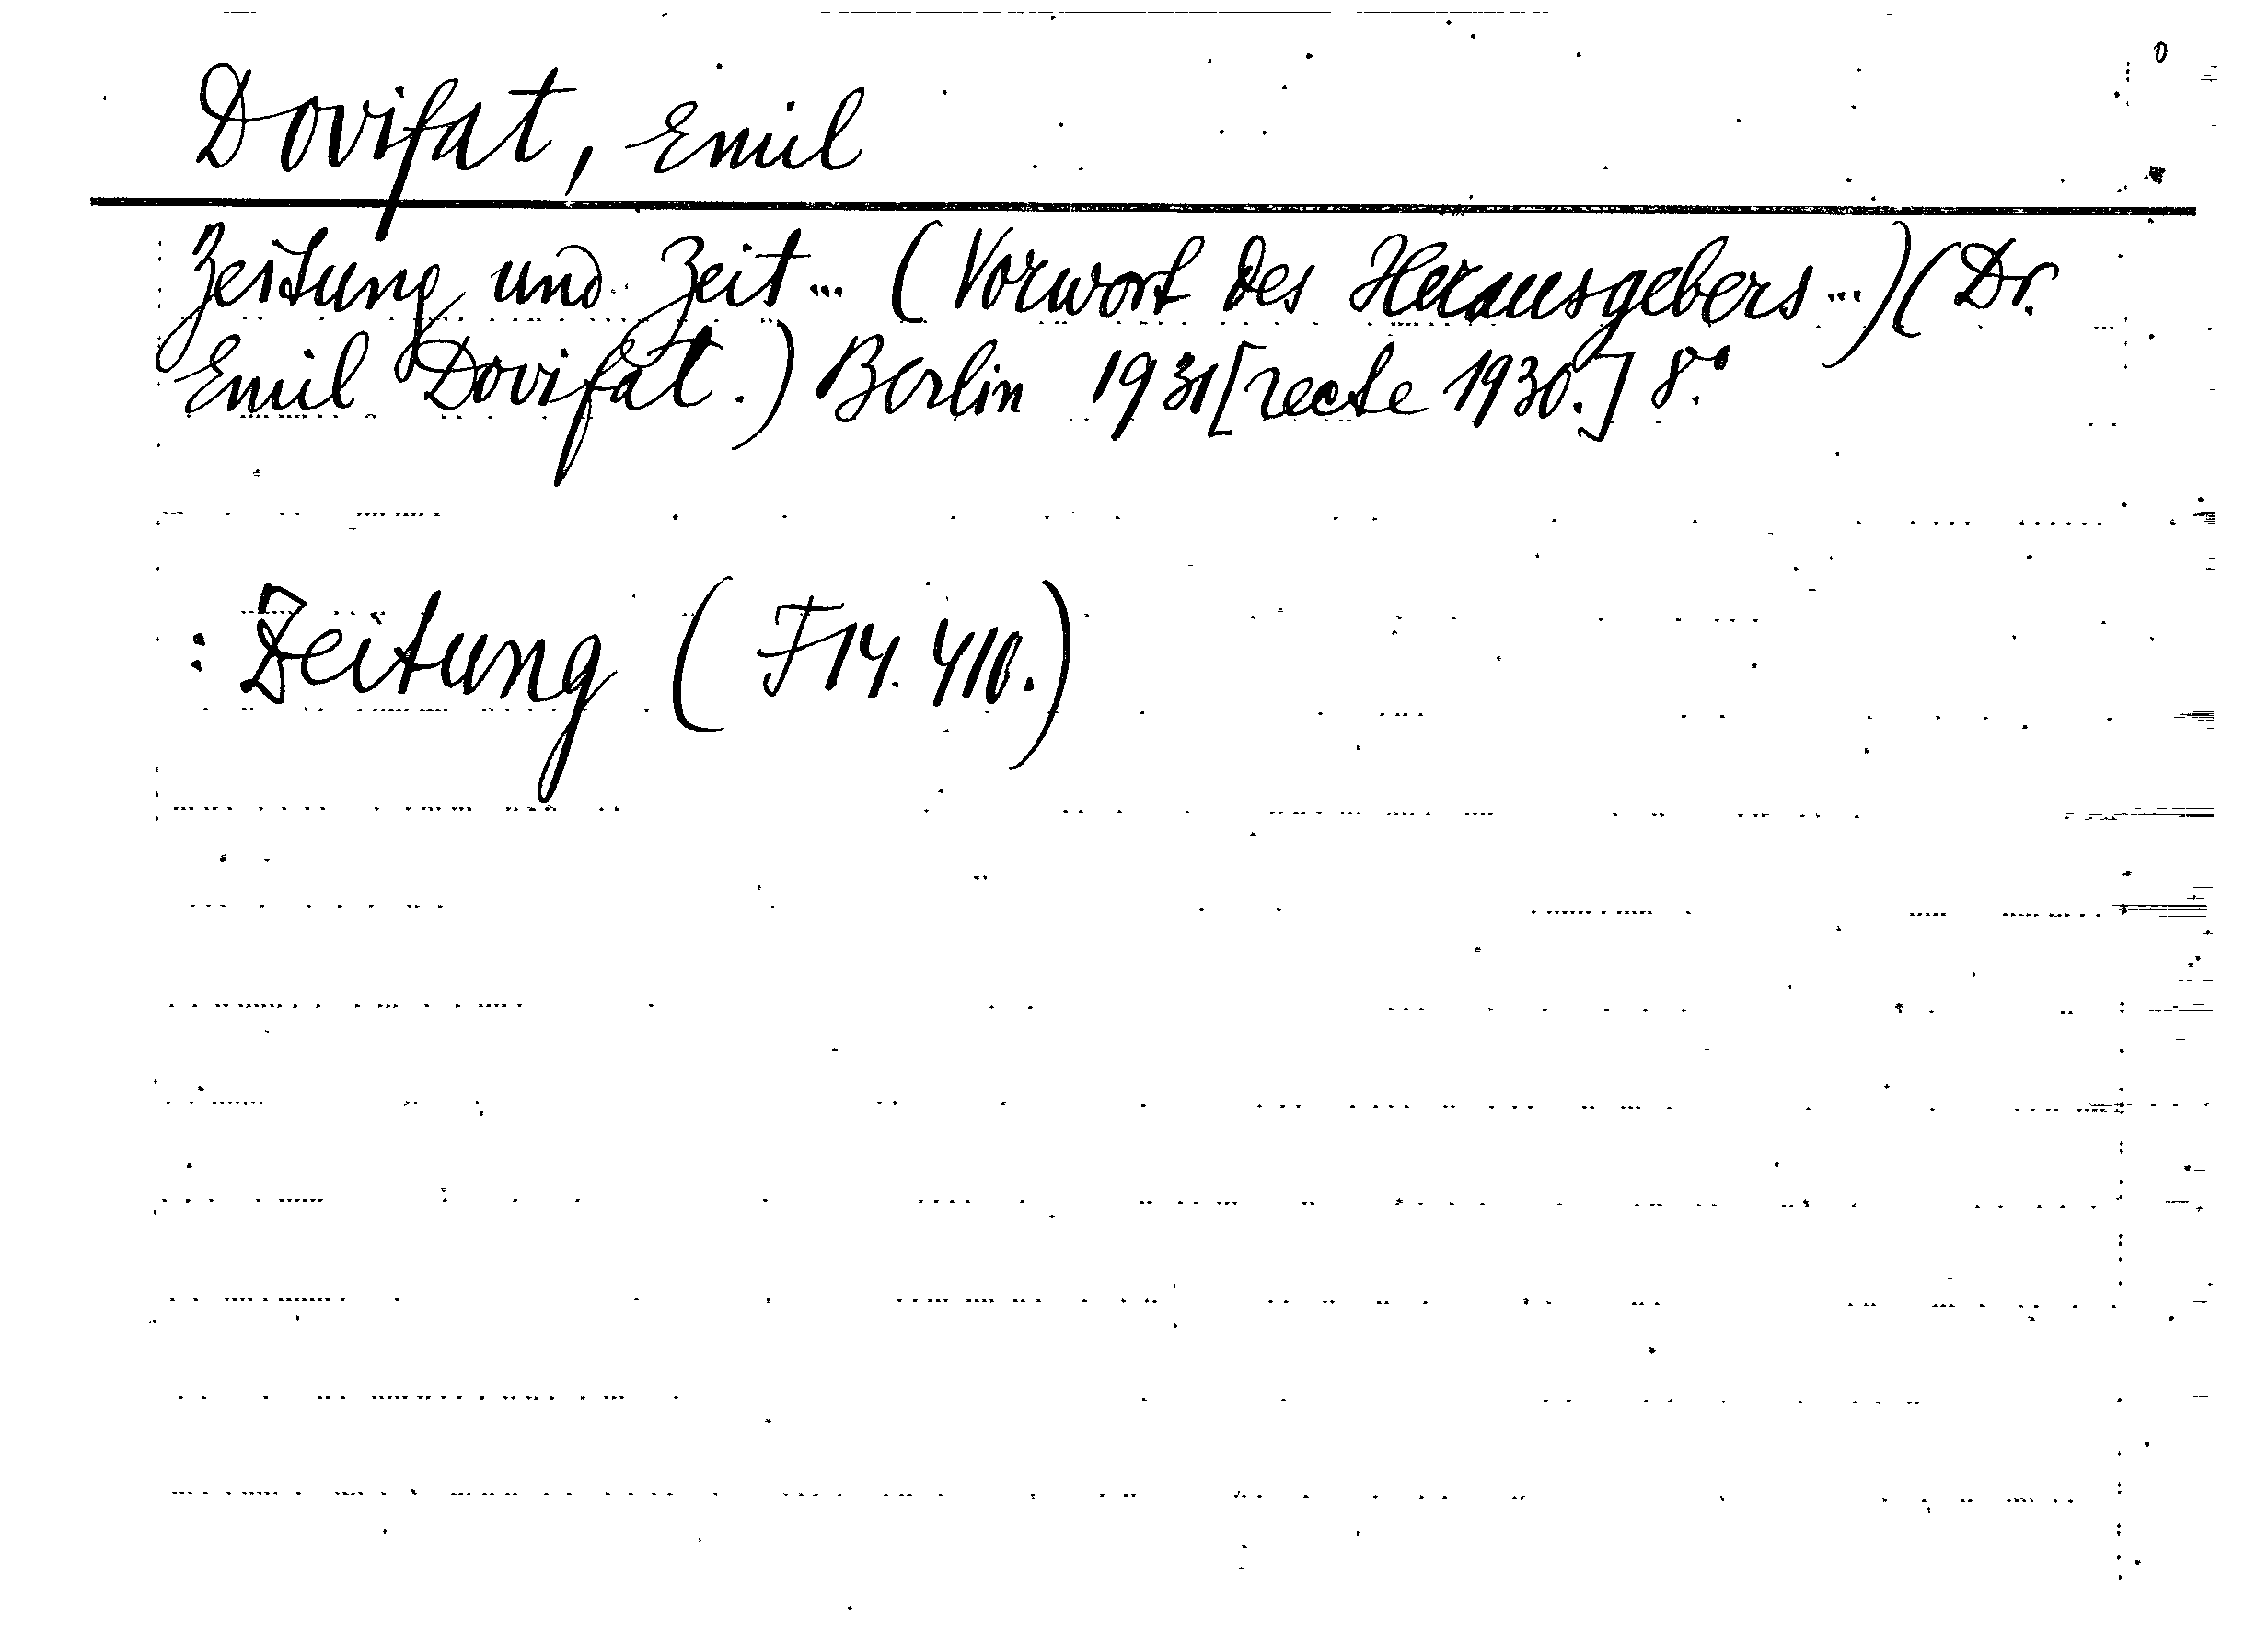 Dovifat, Emil
Zeitung und Zeit ... (Vorwort des Herausgebers ...) (Dr.
Emil Dovifat.) Berlin 1931 [recte 1930.] 8.°
: Zeitung (F14. 410.)